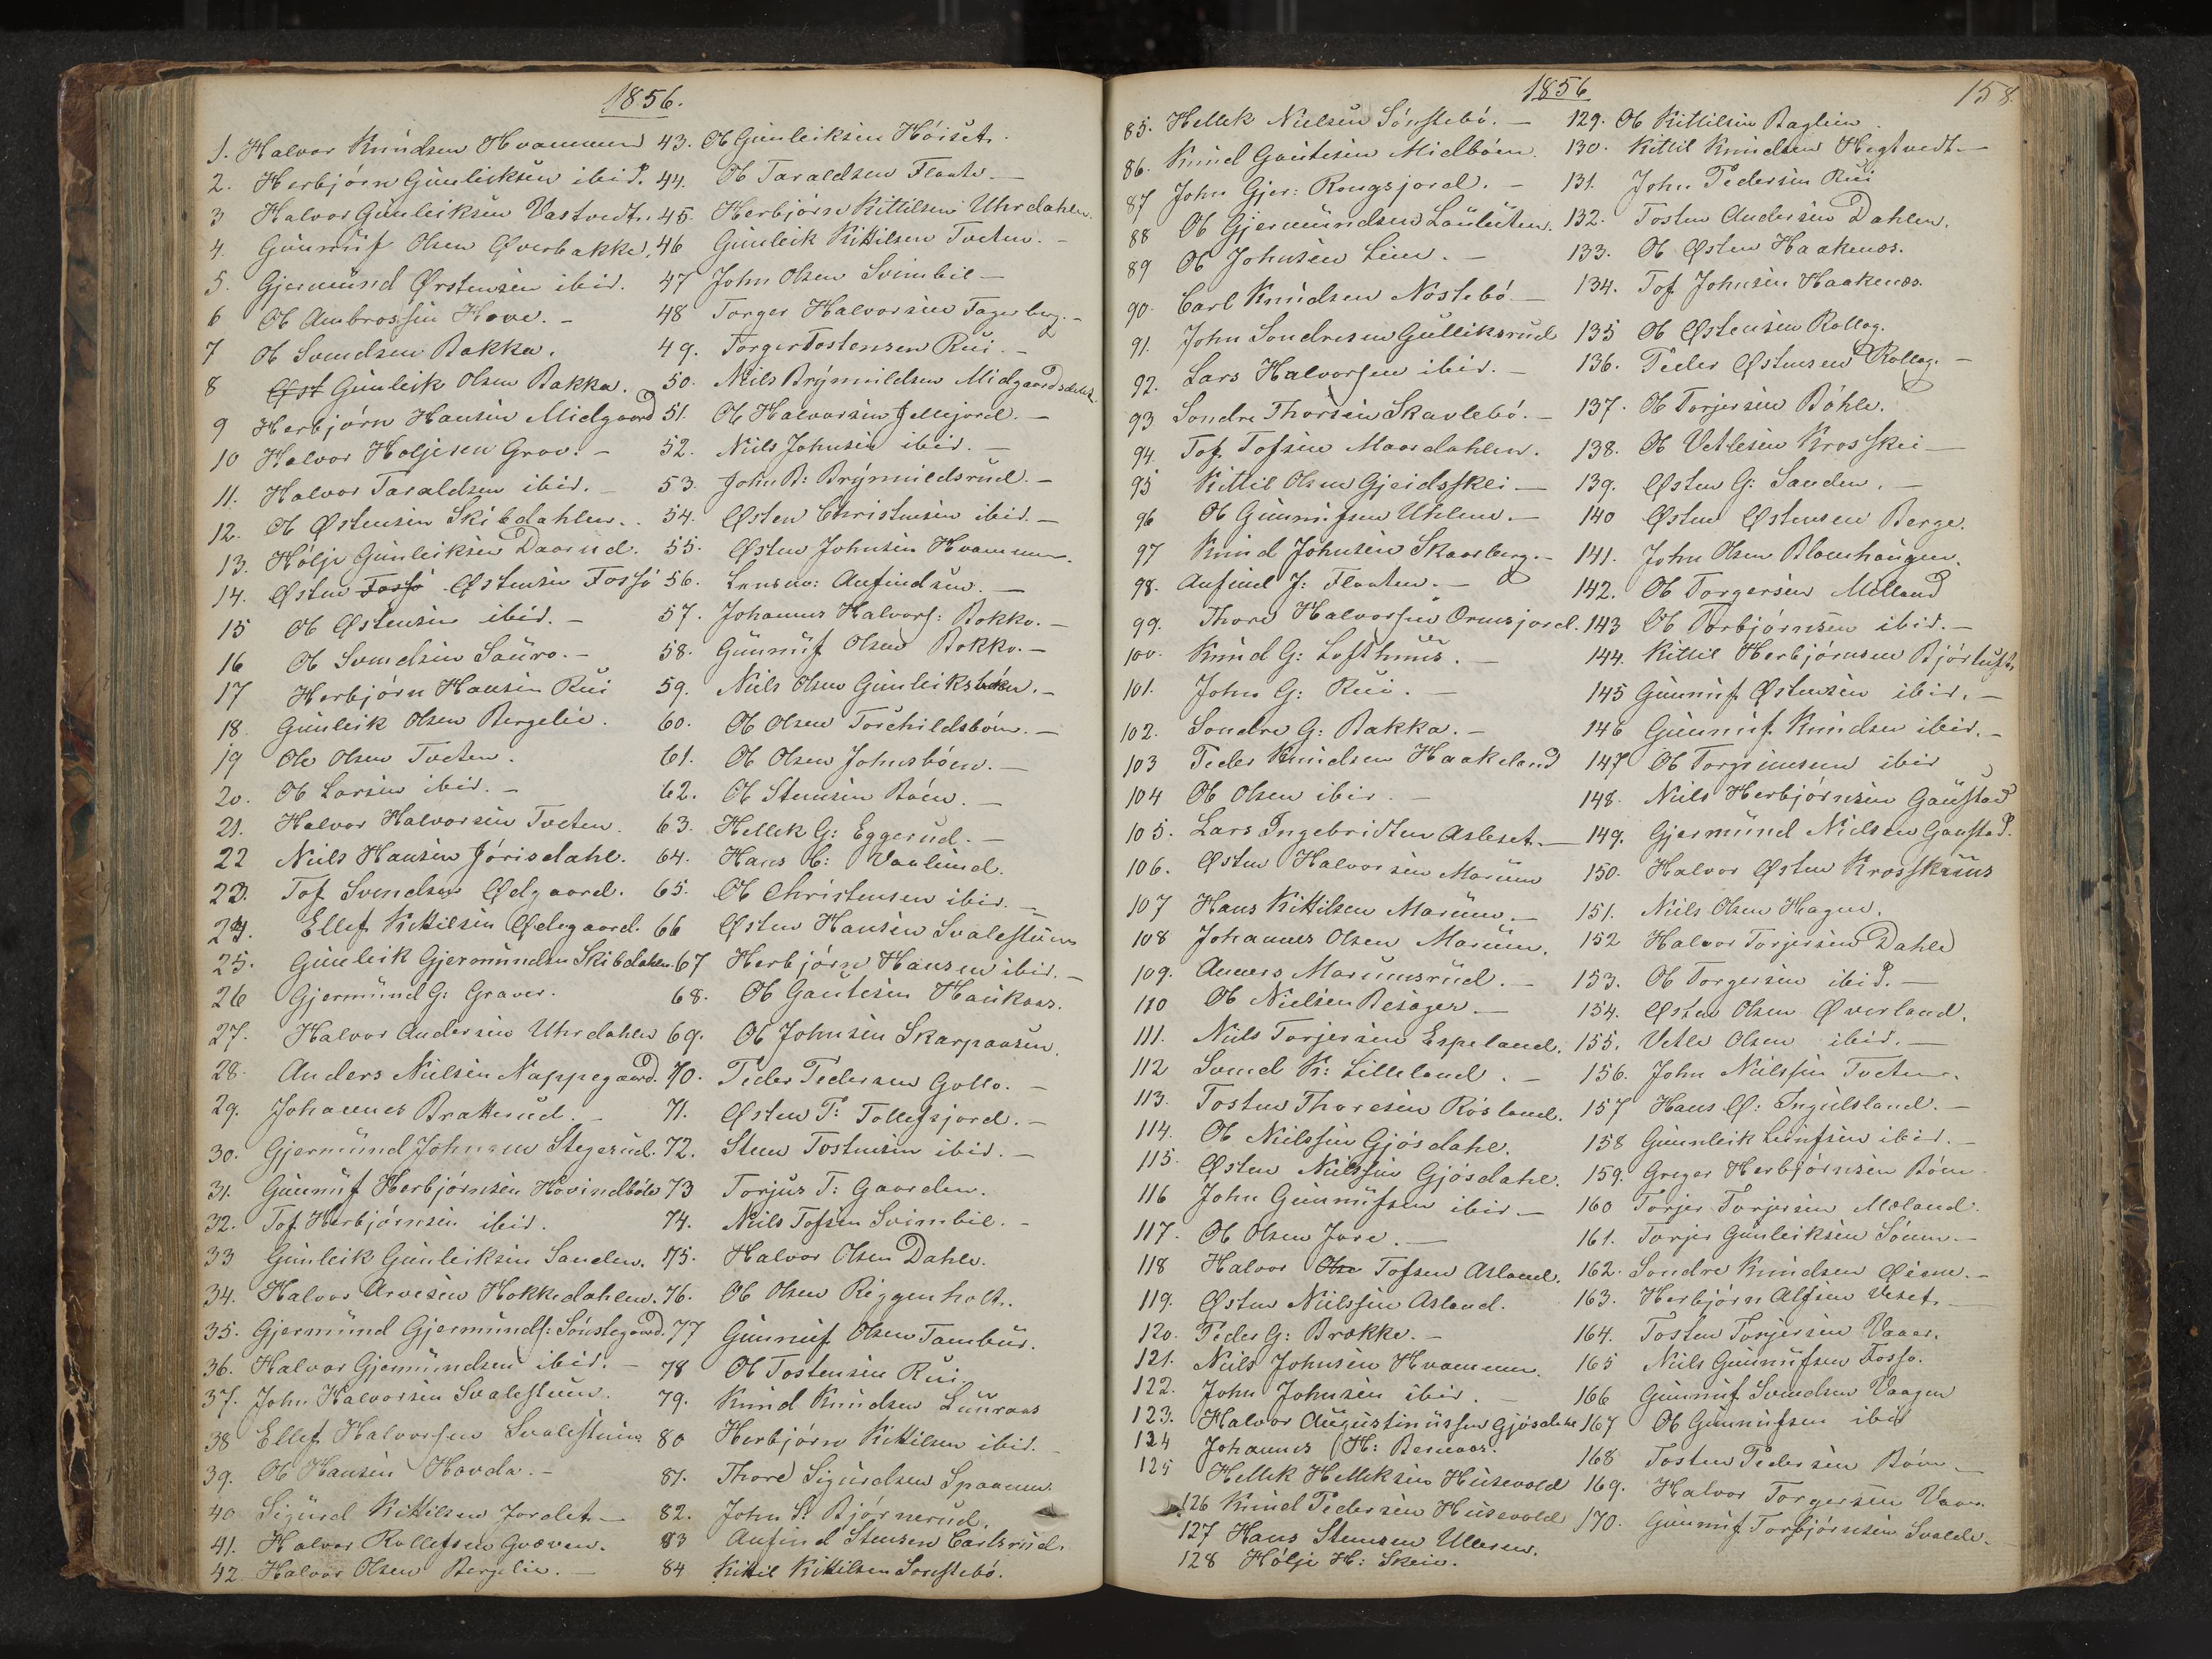 1856.
1. Halvor Knudsen Hvammen
2. Herbjörn Gunleiksen ibid.
3 Halvor Gunleiksen Vastvedt.
4. Gunnuf Olsen Øverbakke.
5. Gjermund Østensen ibid.
6 Ol Ambrossen Hove. -
7 Ol Svendsen Bakka.
8 Øst Gunleik Olsen Bakka.
9 Herbjörn Hansen Midgaard
10 Halvor Holjesen Grov. -
11. Halvor Taraldsen ibid. -
12. Ol Østensen Skibdahlen.
13. Hölje Gunleiksen Daarud.
14. Østen Fossö Østensen Fossö
15 Ol Østensen ibid. -
16 Ol Svendsen Sauro. -
17 Herbjörn Hansen Rui
18. Gunleik Olsen Bergelie.
19 Ole Olsen Tveten.
20. Ol Larsen ibid. -
21. Halvor Halvorsen Tveten.
22 Niels Hansen Jörisdahl.
23. Tof Svendsen Ødgaard.
24. Ellef Kittilsen Ødegaard.
25. Gunleik Gjermundsen Skibdahlen.
26 Gjermund G: Graver.
27. Halvor Andersen Uhrdahlen
28. Anders Nielsen Nappegaard.
29. Johannes Bratterud. -
30. Gjermund Johnsen Stegerud.
31. Gunnuf Herbjörnsen Hovindböle
32. Tof Herbjörnsen ibid.
33 Gunleik Gunleiksen Sanden.
34. Halvor Arvesen Hokkedahlen.
35. Gjermund Gjermunds: Sönstegaard.
36. Halvor Gjermundsen ibid. -
37. John Halvorsen Svalesteun.
38 Ellef Halvorsen Svalesteun
39. Ol Hansen Hovda. -
40 Sigurd Kittilsen Jordet -
41. Halvor Rollefsen Gvæven.
42. Halvor Olsen Bergelie. -
43. Ol Gunleiksen Höiset.
44. Ol Taraldsen Flaate. -
45. Herbjörn Kittilsen Uhrdahlen.
46 Gunleik Kittilsen Tveten. -
47 John Olsen Svimbil -
48 Torger Halvorsen Fagerberg. -
49. Torger Tostensen Rui. -
50. Niels Brynnildsen Midgaards
51. Ol Halvorsen Jellejord. -
52. Niels Johnsen ibid. -
53. John B: Brynnildsrud. -
54. Østen Christensen ibid. -
55. Østen Johnsen Hvammen.
56. Lensm: Anfindsen. -
57. Johannes Halvors: Bokko. -
58. Gunnuf Olsen Bokko. -
59. Niels Olsen Gunleiksböen. -
60. Ol Olsen Torchildsböen. -
61. Ol Olsen Johnsböen. -
62. Ol Stensen Böen. -
63. Hellek G: Eggerud. -
64. Hans C: Vaalund.
65. Ol Christensen ibid. -
66 Østen Hansen Svalesteun
67 Herbjörn Hansen ibid. -
68. Ol Gautesen Haukaas.
69. Ol Johnsen Skarpaasen.
70. Peder Pedersen Gollo. -
71. Østen T: Tollefsjord. -
72. Sten Tostensen ibid. -
73 Torjus T: Gaarden.
74. Niels Tofsen Svimbil. -
75. Halvor Olsen Dahle.
76. Ol Olsen Riggenholt.
77 Gunnuf Olsen Tambur.
78 Ol Tostensen Rui.
79. Knud Knudsen Luuraas
80 Herbjörn Kittilsen ibid. -
81. Thore Sigurdsen Spaanem.
82. John S. Björnerud.
83 Anfind Stensen Carlsrud.
84 Kittil Kittilsen Sönstebö.
1856
158.
85. Hellek Nielsen Sönstebö. -
86. Knud Gautesen Midböen.
87 John Gjer: Rougsjord. -
88 Ol Gjermundsen Lauluten.
89 Ol Johnsen Lien. -
90. Carl Knudsen Nostebö -
91. John Sondresen Gulliksrud
92. Lars Halvorsen ibid. -
93 Sondre Thorsen Skavlebö. -
94. Tof Tofsen Maardahlen.
95 Kittil Olsen Gjeidsskei -
96 Ol Gunnufsen Uhlen. -
97 Knud Johnsen Skaarberg. -
98. Anfind J: Flaaten. -
99. Thore Halvorsen Ormsjord.
100. Knud G: Lofthuus. -
101. John G: Rui. -
102. Sondre G: Bakka. -
103 Peder Knudsen Haakeland
104 Ol Olsen ibid. -
105. Lars Ingebridtsen Asleset. -
106. Østen Halvorsen Marum
107 Hans Kittilsen Marum. -
108 Johannes Olsen Marum.
109. Anners Marumsrud. -
110 Ol Nielsen Besager. -
111. Niels Torjersen Espeland.
112 Svend K: Lilleland. -
113. Tosten Thoresen Rösland.
114. Ol Nielssen Gjösdahl.
115. Østen Nielssen Gjösdahl.
116 John Gunnufsen ibid. -
117. Ol Olsen Jore. -
118 Halvor Olse Tofsen Asland.
119. Østen Nielssen Asland.
120. Peder G: Brække. -
121. Niels Johnsen Hvammen.
122. John Johnsen ibid. -
123. Halvor Augustinussen Gjösdahl
124 Johannes H: Bernaas.
125 Hellek Helleksen Husevold
126 Knud Pedersen Husevold
127 Hans Stensen Ulleren.
128 Hölje H: Skeie.
129. Ol Kittilsen Baglien
130. Kittil Knudsen Hegtvedt. -
131. John Pedersen Rui
132. Tosten Andersen Dahlen.
133. Ol Østen Haakenæs.
134. Tof Johnsen Haakenæs.
135 Ol Østensen Rollag.
136. Peder Østensen Rollag. -
137. Ol Torjersen Böhle.
138. Ol Vetlesen Krosskei -
139. Østen G: Sanden. -
140 Østen Østensen Berge.
141. John Olsen Blomhaugen.
142. Ol Torgersen Milland
143 Ol Torbjörnsen ibid. -
144. Kittil Herbjörnsen Björtuft.
145 Gunnuf Østensen ibid. -
146 Gunnuf Knudsen ibid. -
147 Ol Torgrimsen ibid
148. Niels Herbjörnsen Gaustad
149. Gjermund Nielsen Gaustad.
150. Halvor Østen Krosskuus
151. Niels Olsen Hagen.
152 Halvor Torjersen Dahle
153. Ol Torgersen ibid. -
154. Østen Olsen Øverland.
155. Vetle Olsen ibid. -
156. John Nielssen Tveten.
157 Hans Ø: Ingulsland. -
158 Gunnleik Leufsen ibid. -
159. Greger Herbjörnsen Böen
160 Torjer Torjersen Mæland.
161. Torjer Gunleiksen Söum. -
162. Sondre Knudsen Øien. -
163. Herbjörn Alfsen Veset. -
164. Tosten Torjersen Vaaer.
165 Niels Gunnufsen Fosso.
166 Gunnuf Svendsen Vaagen
167 Ol Gunnufsen ibid
168 Tosten Pedersen Böen -
169. Halvor Torgersen Vaaer.
170. Gunnuf Torbjörnsen Svalde. -